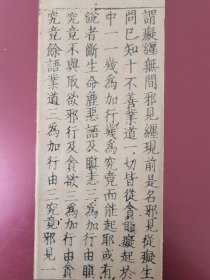 謂癡纏無間邪見纏現前是名邪見從癡生
問已知十不善業道一切皆從貪瞋癡起於
中一一幾為加行幾為究竟而能起耶或有
說者斷生命麤惡語及瞋恚三為加行由瞋
究竟不與取欲邪行及貪欲三為加行由貪
究竟餘語業道三為加行由三究竟邪見一